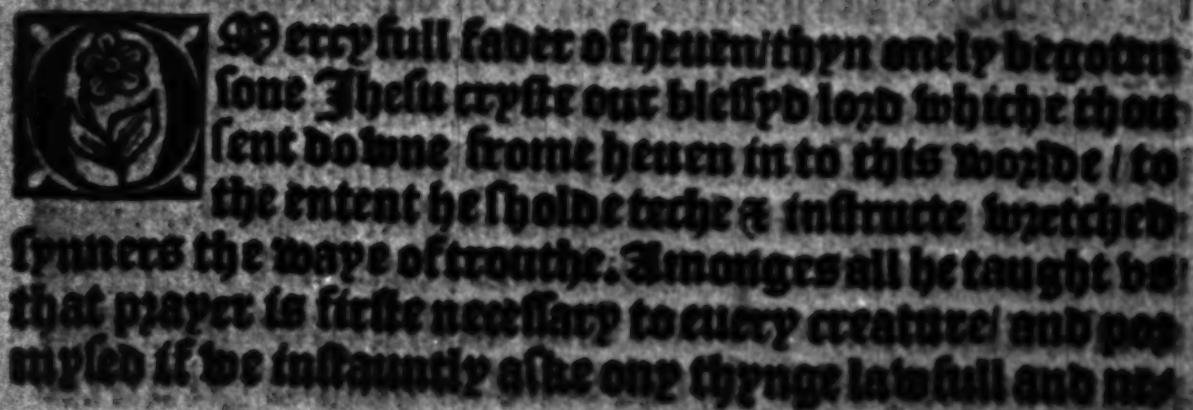 O Mercyfull fader of heuen/thyn onely begoten
sone Jhesu cryste our blessyd lord whiche thou
sent downe frome heuen in to this worlde / to
the entent he sholde teche & instructe wretched
synners the waye of trouthe. Amonges all he taught vs
that prayer is firste necessary to euery creature/ and pro
mysed if we instauntly aske ony thynge lawfull and nes